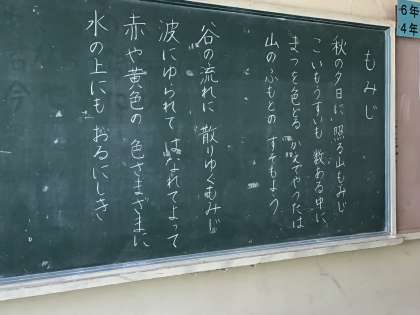 もみじ
秋の夕日に 照る山もみじ
こいもうすいも 数ある中に
まつを色どる かえでやつたは
山のふもとの すそもよう
谷の流れに 散りゆくもみじ
波にゆられて はなれてよって
赤や黄色の 色さまざまに
水の上にも おるにしき
6年
4年